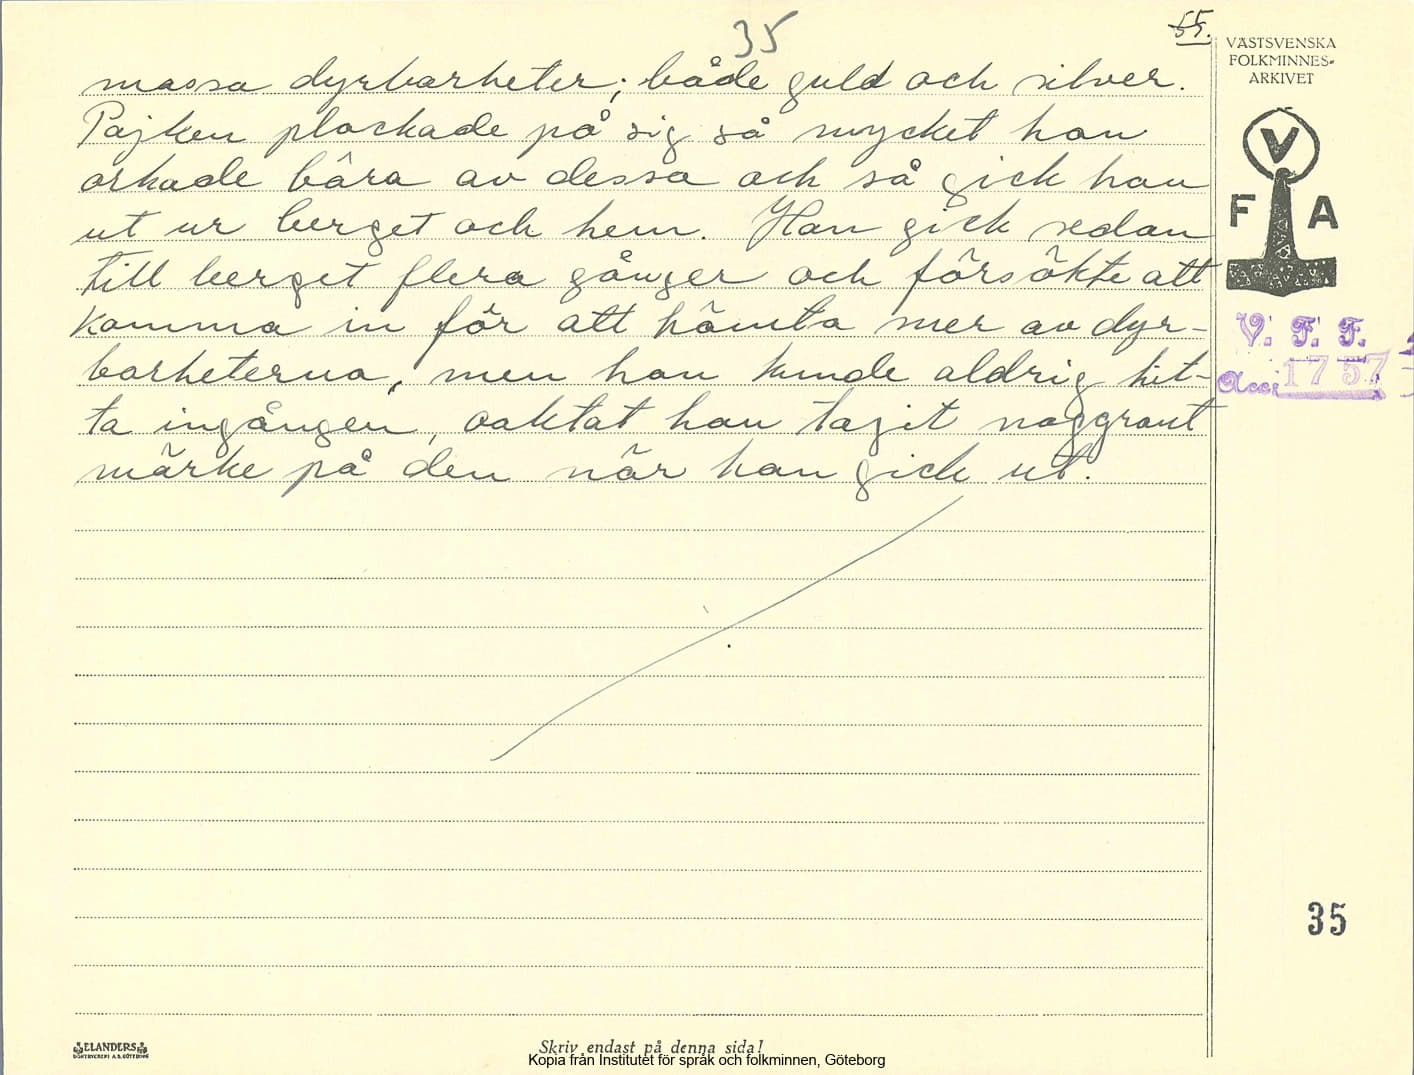 35
55.
VÄSTSVENSKA
FOLKMINNES-
ARKIVET
V
F A
V. F. F.
Acc. 1757
massa dyrbarheter; både guld och silver.
Pojken plockade på sig så mycket han
orkade bära av dessa och så gick han
ut ur berget och hem. Han gick sedan
till berget flera gånger och försökte att
komma in för att hämta mer av dyr-
barheterna, men han kunde aldrig hit-
ta ingången, oaktat han tagit noggrant
märke på den när han gick ut.
35
ELANDERS
BOKTRYCKERI A.B. GÖTEBORG
Skriv endast på denna sida!
Kopia från Institutet för språk och folkminnen, Göteborg